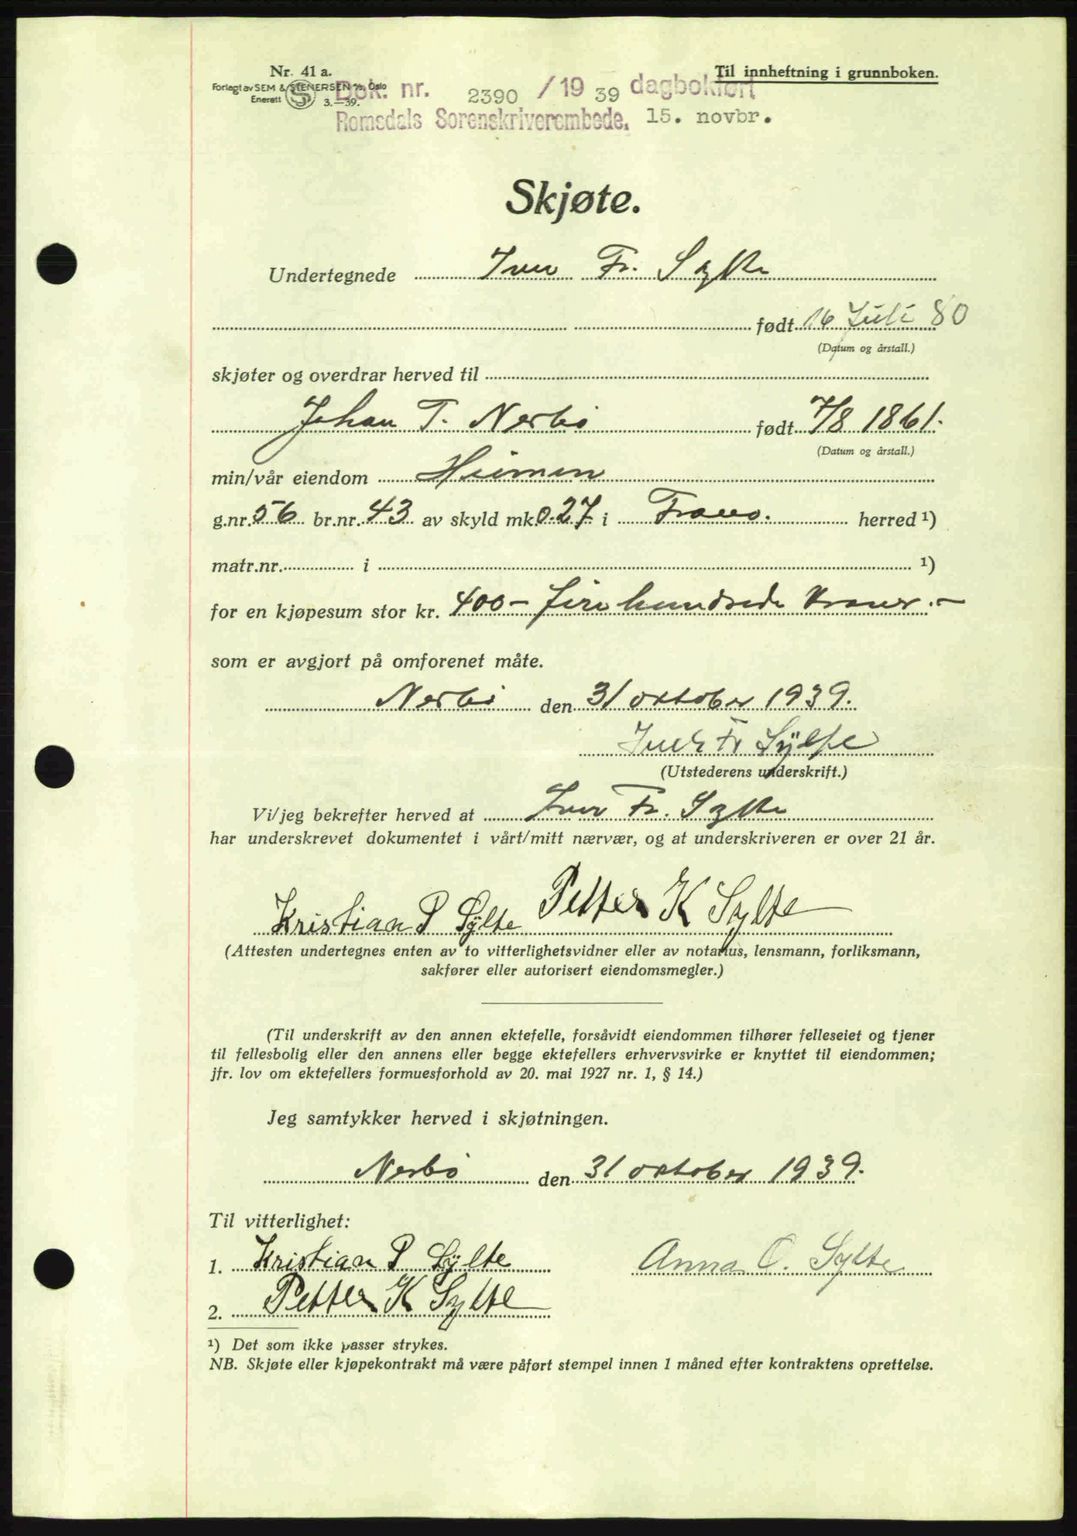 Nr. 41 a.
Til innheftning i grunnboken.
Forlagt av SEM & STENERSEN A/S, Oslo
Enerett 3.—39.
Dok. nr. 2390 / 19 39 dagbokført
Romsdals Sorenskriverembede, 15. novbr.
Skjøte.
Undertegnede Iver Fr. Sylte
født 16 Juli 80
(Datum og årstall.)
skjøter og overdrar herved til
Johan T. Nerbø født 7/8 1861.
(Datum og årstall.)
min/vår eiendom Heimen
g.nr. 56 br.nr. 43 av skyld mk. 0.27 i Fræna. herred ¹)
matr.nr. i ¹)
for en kjøpesum stor kr. 400 — fire hundrede kroner. —
som er avgjort på omforenet måte.
Nerbø den 31 oktober 1939.
Iver Fr Sylte
(Utstederens underskrift.)
Vi/jeg bekrefter herved at Iver Fr. Sylte
har underskrevet dokumentet i vårt/mitt nærvær, og at underskriveren er over 21 år.
Kristian P Sylte Petter K Sylte
(Attesten undertegnes enten av to vitterlighetsvidner eller av notarius, lensmann, forliksmann,
sakfører eller autorisert eiendomsmegler.)
(Til underskrift av den annen ektefelle, forsåvidt eiendommen tilhører felleseiet og tjener
til fellesbolig eller den annens eller begge ektefellers erhvervsvirke er knyttet til eiendommen;
jfr. lov om ektefellers formuesforhold av 20. mai 1927 nr. 1, § 14.)
Jeg samtykker herved i skjøtningen.
Nerbø den 31 oktober 1939.
Til vitterlighet:
1. Kristian P Sylte Anna O. Sylte
2. Petter K Sylte
¹) Det som ikke passer strykes.
NB. Skjøte eller kjøpekontrakt må være påført stempel innen 1 måned efter kontraktens oprettelse.